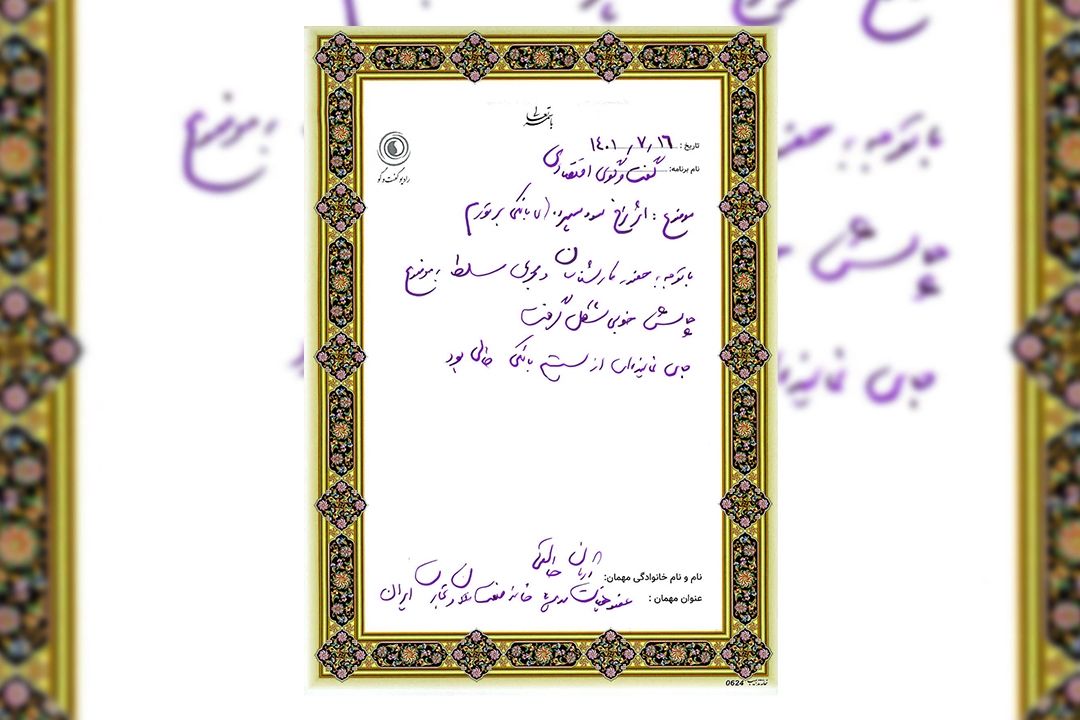 باسمه تعالی
رادیو گفت و گو
تاریخ: ۱۴۰۱/۷/۱۶
نام برنامه: گفت و گوی اقتصادی
موضوع: اثر نرخ سود سپرده های بانکی بر تورم
با توجه به حضور کارشناسان و مجری مسلط به موضوع
چالش خوبی شکل گرفت
جای نماینده‌ای از سیستم بانکی خالی بود
نام و نام خانوادگی مهمان: آرمان خالقی
عنوان مهمان: عضو هیات مدیره خانه صنعت معدن و تجارت ایران
0624